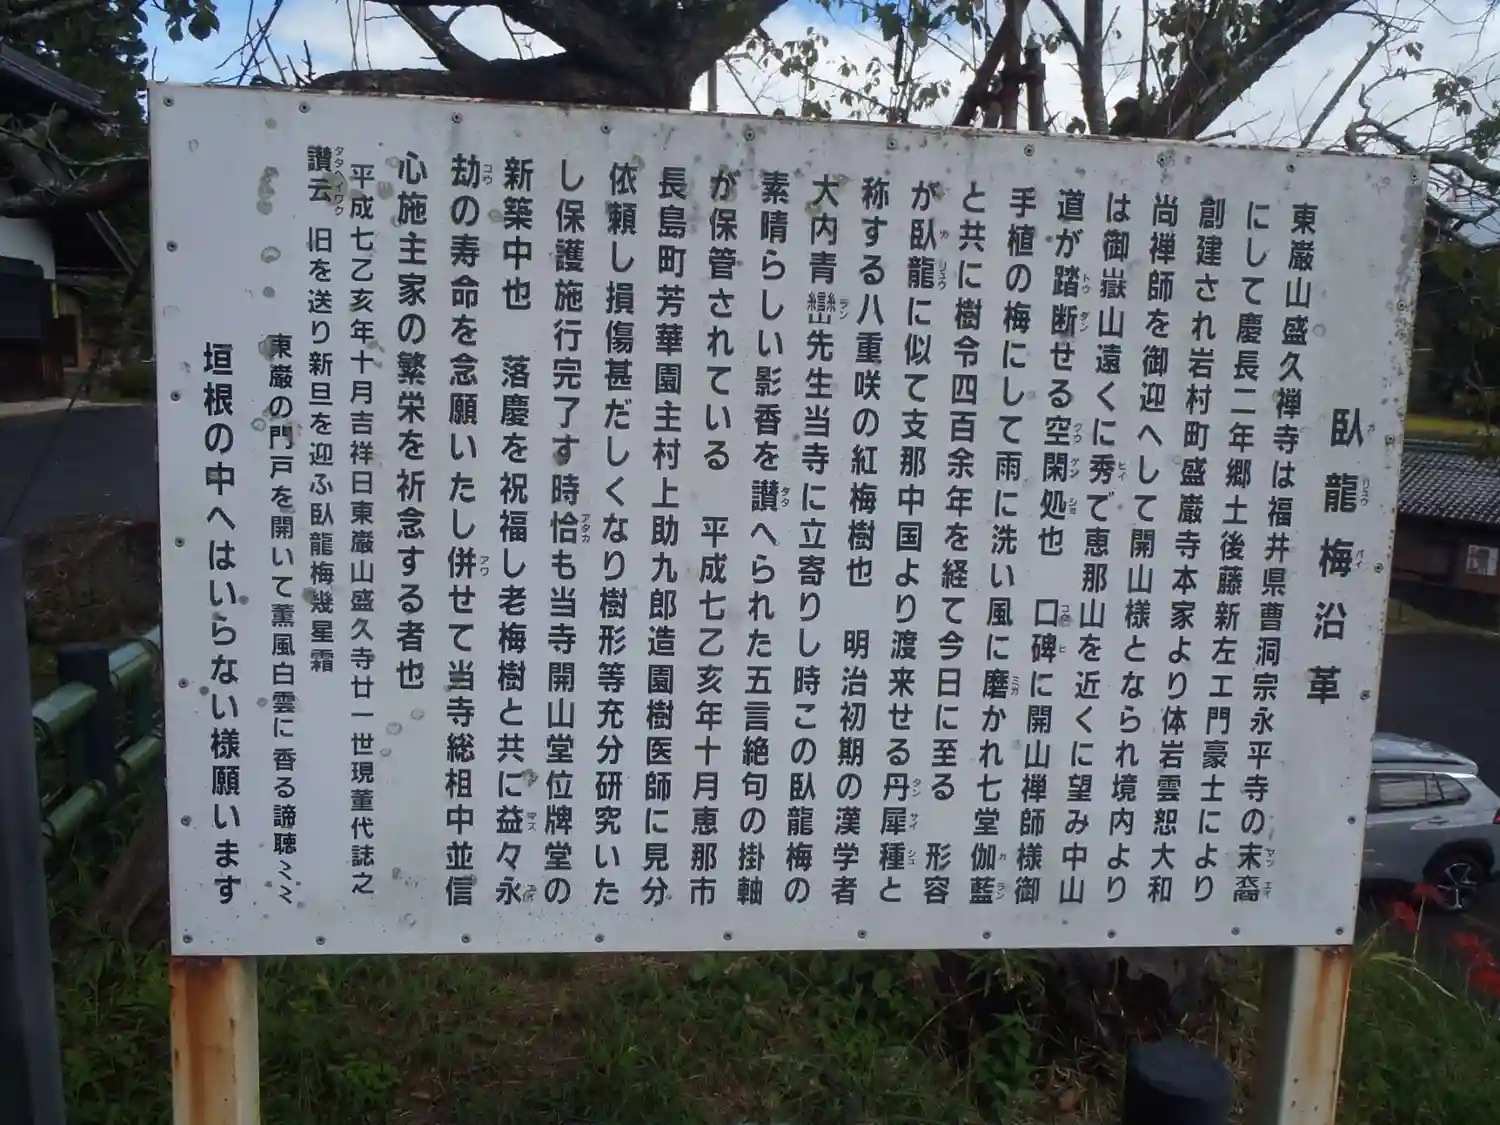 臥龍梅沿革
東巌山盛久禅寺は福井県曹洞宗永平寺の末裔
にして慶長二年郷土後藤新左エ門豪士により
創建され岩村町盛巌寺本家より体岩雲恕大和
尚禅師を御迎へして開山様となられ境内より
は御嶽山遠くに秀で恵那山を近くに望み中山
道が踏断せる空閑処也 口碑に開山禅師様御
手植の梅にして雨に洗い風に磨かれ七堂伽藍
と共に樹令四百余年を経て今日に至る 形容
が臥龍に似て支那中国より渡来せる丹犀種と
称する八重咲の紅梅樹也 明治初期の漢学者
大内青巒先生当寺に立寄りし時この臥龍梅の
素晴らしい影香を讃へられた五言絶句の掛軸
が保管されている 平成七乙亥年十月恵那市
長島町芳華園主村上助九郎造園樹医師に見分
依頼し損傷甚だしくなり樹形等充分研究いた
し保護施行完了す時恰も当寺開山堂位牌堂の
新築中也 落慶を祝福し老梅樹と共に益々永
劫の寿命を念願いたし併せて当寺総祖中並信
心施主家の繁栄を祈念する者也
平成七乙亥年十月吉祥日東巌山盛久寺廿一世現董代誌之
讃云 旧を送り新旦を迎ふ臥龍梅幾星霜
東巌の門戸を開いて薫風白雲に香る諦聴〻〻
垣根の中へはいらない様願います